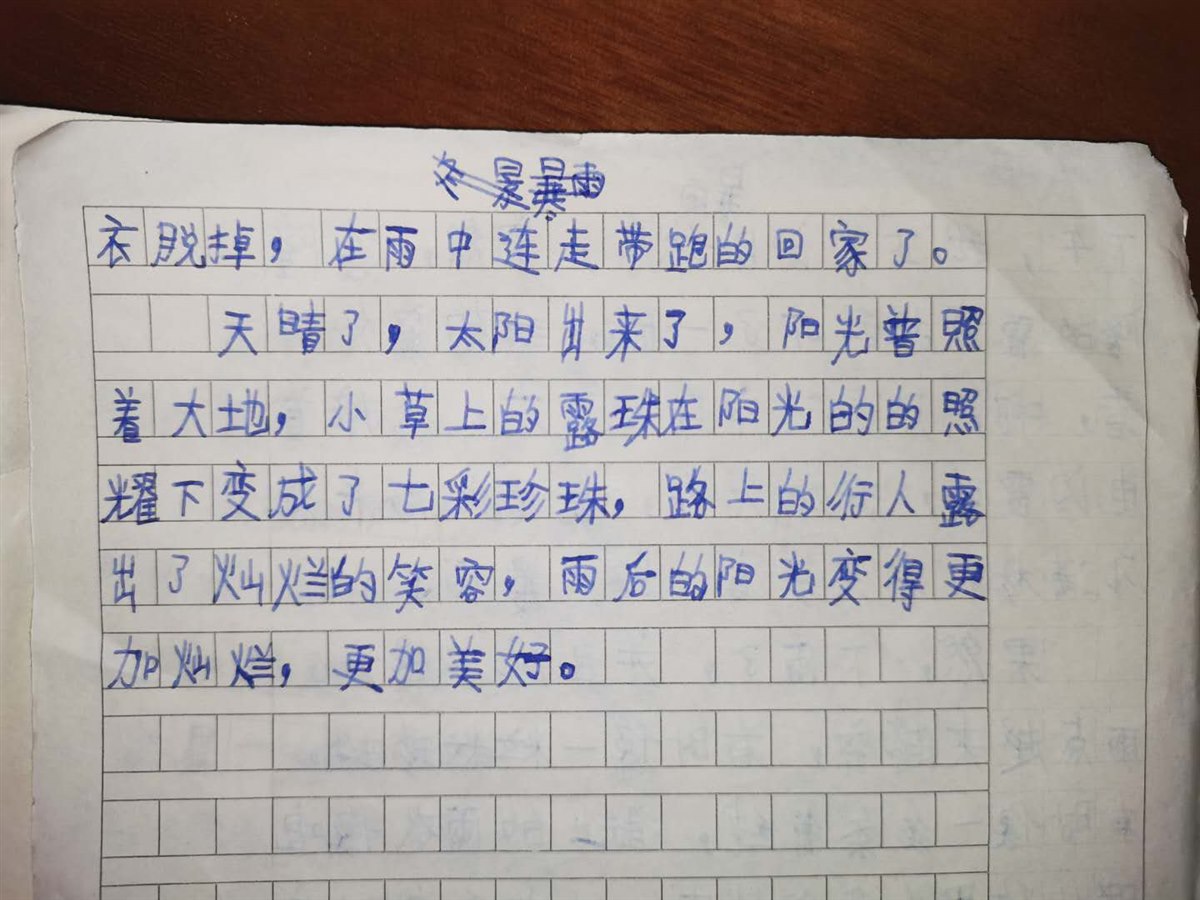 冬暴暴雨
衣脱掉，在雨中连走带跑的回家了。
天晴了，太阳出来了，阳光普照
着大地，小草上的露珠在阳光的的照
耀下变成了七彩珍珠，路上的行人露
出了灿烂的笑容，雨后的阳光变得更
加灿烂，更加美好。